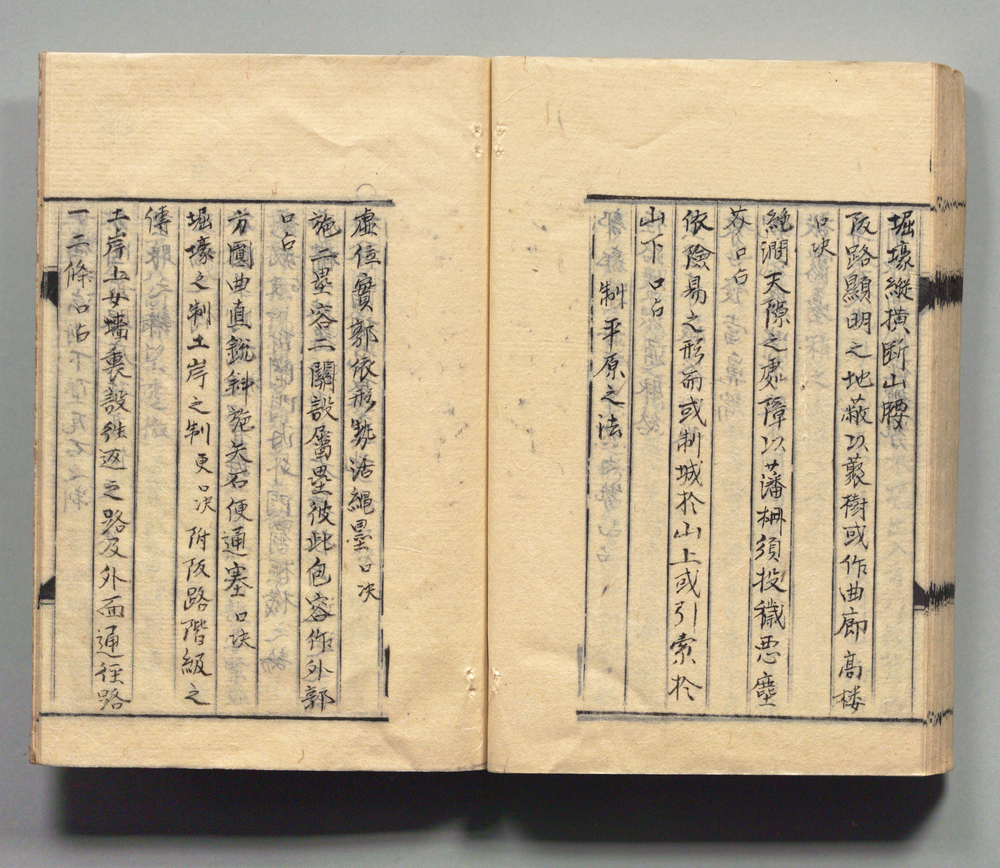 堀壕縱橫断山腰
阪路顯明之地蔽以叢樹或作曲廊高楼
口决
絶澗天隙之處障以藩柵須投穢悪塵
芥口占
依險易之形而或制城於山上或引索於
山下口占
制平原之法
虚位實郭依形勢活繩墨口决
施二壘容二關設属壘彼此包容作外郭
口占
方圓曲直銳斜施矢石便通塞口决
堀壕之制土岸之制更口决附阪路階級之
傳
土岸上女墻裏設往迊之路及外面通徑路
一二條口占